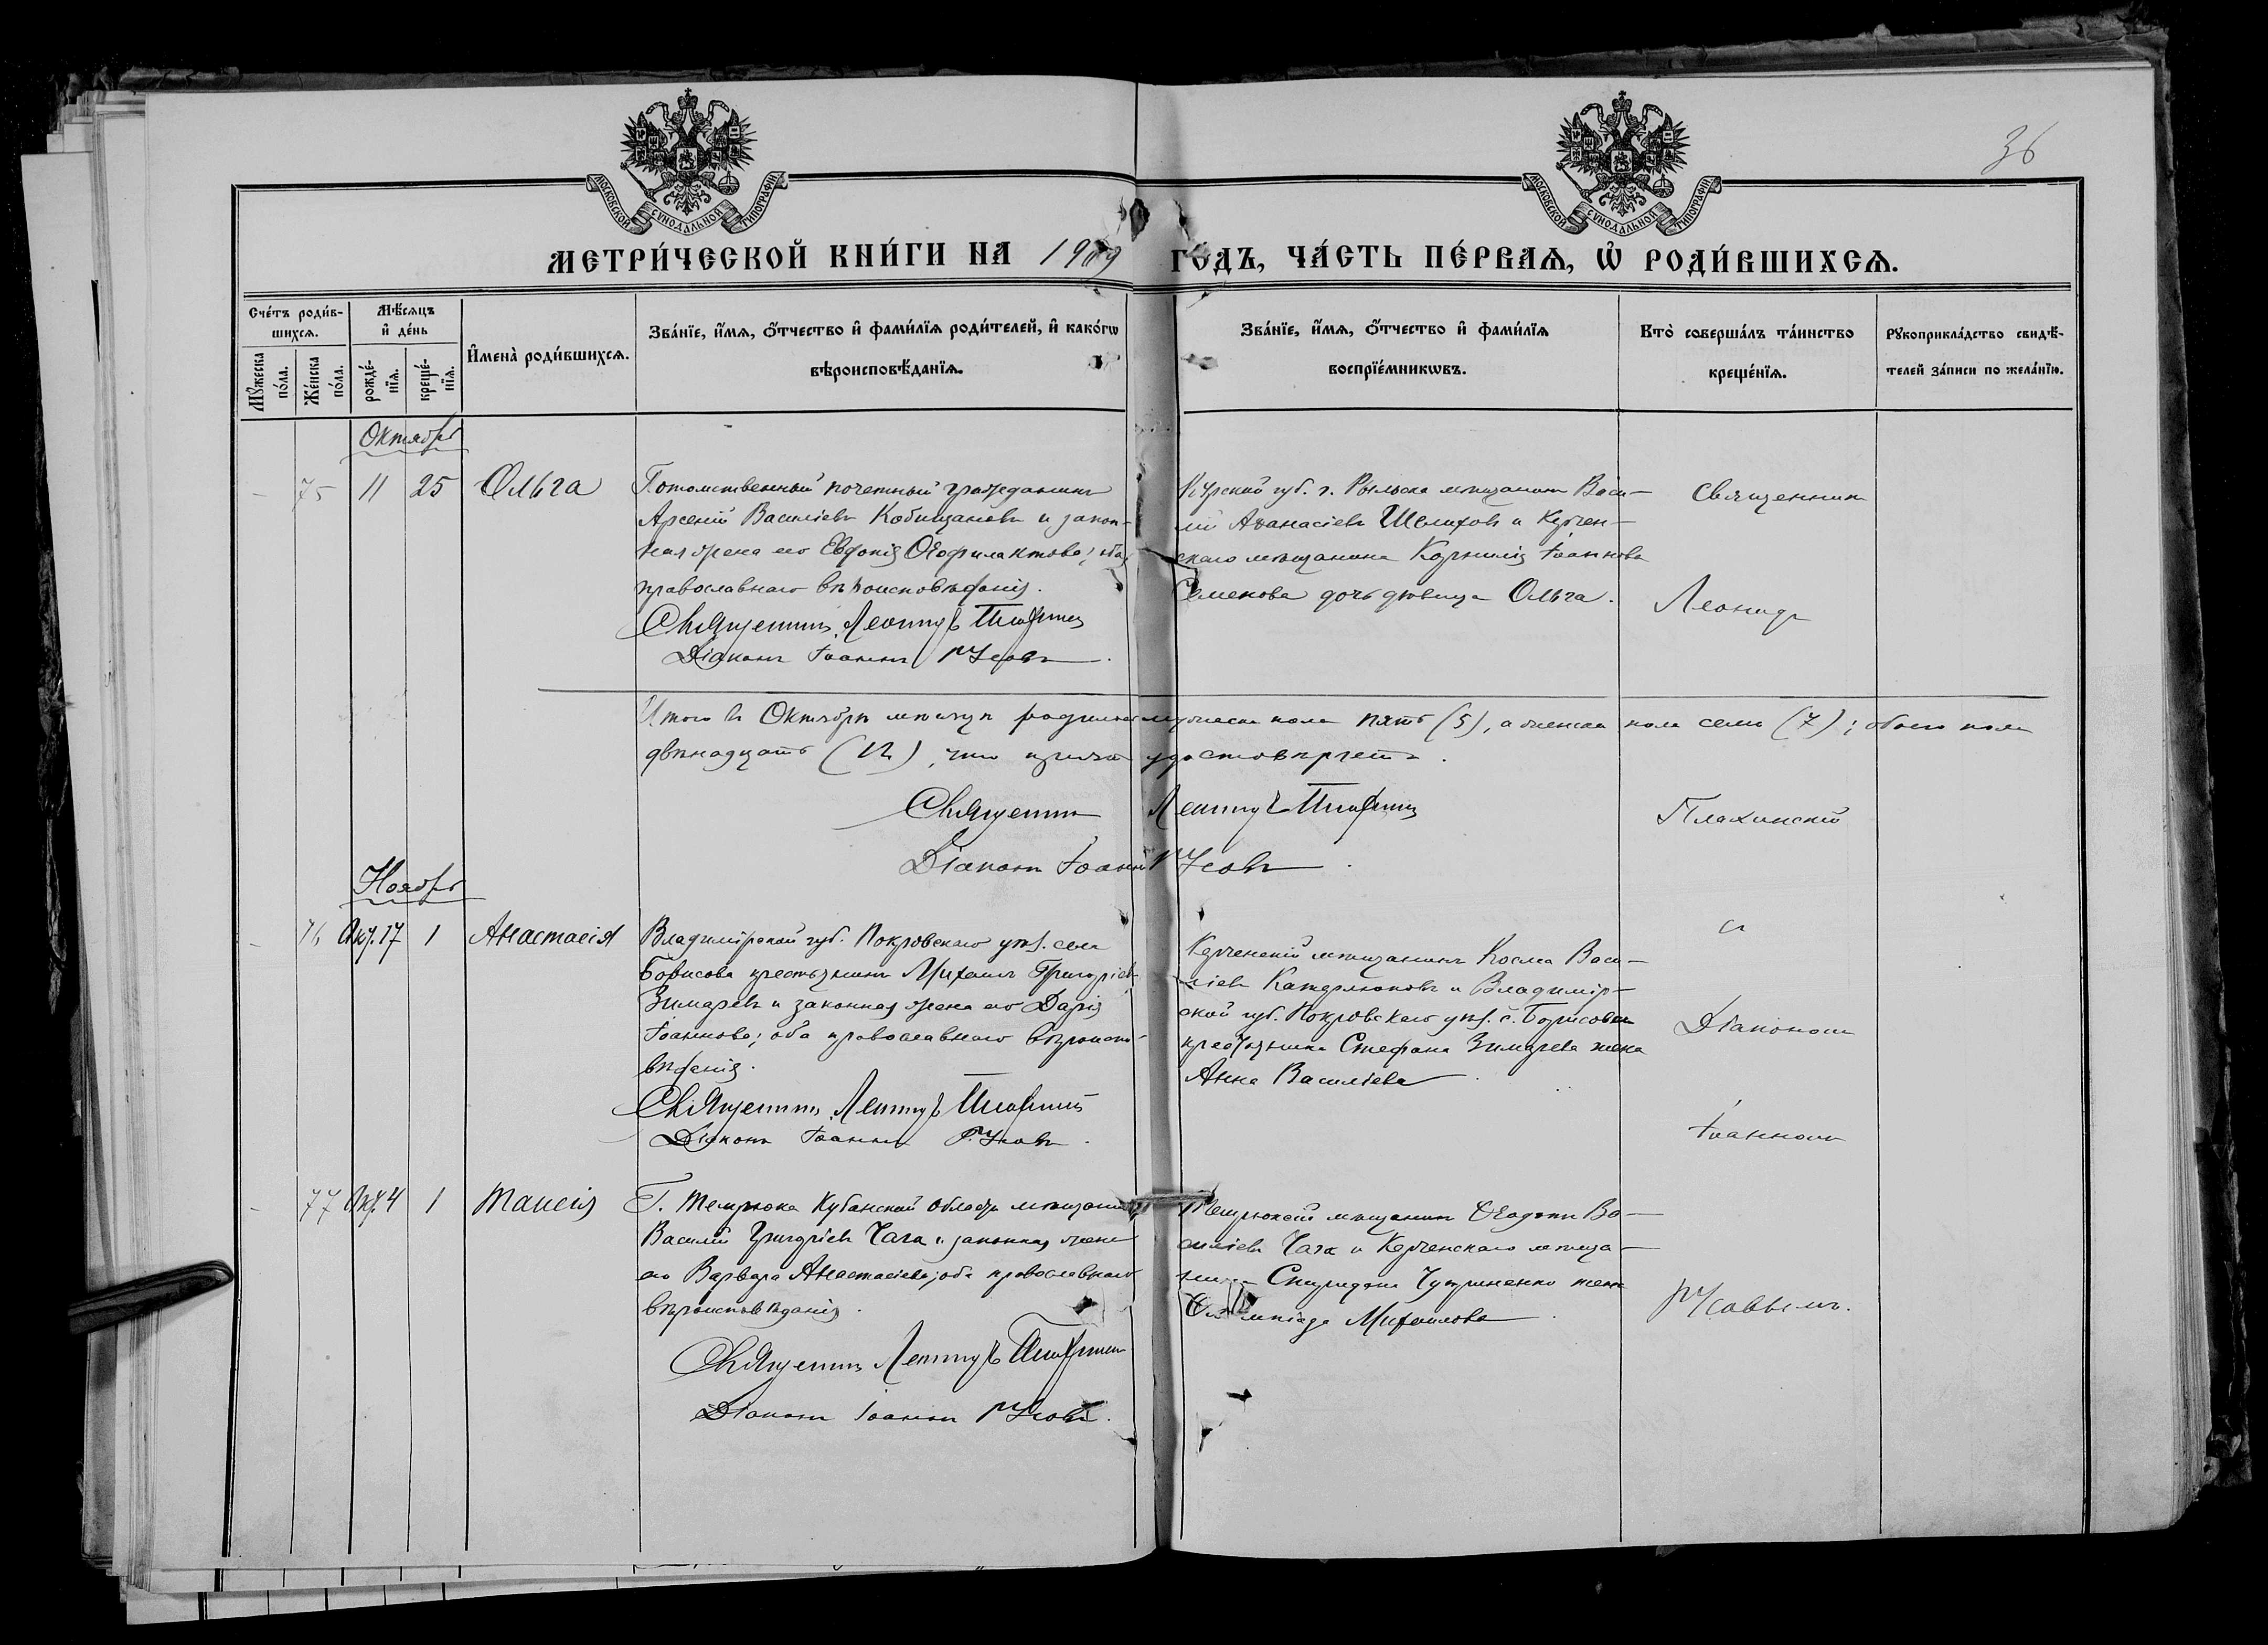 36
МОСКОВСКОЙ СѴНОДАЛЬНОЙ ТИПОГРАФІИ
МОСКОВСКОЙ СѴНОДАЛЬНОЙ ТИПОГРАФІИ
МЕТРИ́ЧЕСКОЙ КНИ́ГИ НА 1909 ГО́ДЪ, ЧА́СТЬ ПЕ́РВАѦ, Ѡ҆ РОДИ́ВШИХСѦ.
Сче́тъ роди́в-
шихсѧ.
Мꙋ́жеска по́ла.
Же́нска по́ла.
Мѣ́сѧцъ и҆ де́нь
рожде́-
нїѧ.
креще́-
нїѧ.
И҆мена̀ роди́вшихсѧ.
Зва́нїе, и҆́мѧ, ѻ҆́тчество и҆ фами́лїѧ роди́телей, и҆ како́гѡ
вѣроисповѣ́данїѧ.
Зва́нїе, и҆́мѧ, ѻ҆́тчество и҆ фами́лїѧ
воспрїе́мникѡвъ.
Кто̀ соверша́лъ та́инство
креще́нїѧ.
Рꙋкоприкла́дство свидѣ́-
телей за́писи по жела́нїю.
Октябрь
- 75 11 25 Ольга
Потомственный почетный гражданинъ
Арсеній Василіевъ Кобищановъ и закон-
ная жена его Евдокія Ѳеофилактова; оба
православнаго вѣроисповѣданія.
Священникъ Леонидъ
Діаконъ Іоаннъ Русовъ.
Курской губ. г. Рыльска мѣщанинъ Васи-
лій Аѳанасіевъ Шелиховъ и Керчен-
скаго мѣщанина Корнилія Іоаннова
Семенова дочь дѣвица Ольга.
Священник
Леонидъ
Итого въ Октябрѣ мѣсяцѣ родилось мужеска пола пять (5), а женска пола семь (7); обоего пола
двѣнадцать (12), что удостовѣряетъ.
Священникъ Леонидъ
Діаконъ Іоаннъ Русовъ.
Плахинскій
Ноябрь
- 76 Окт. 17 1 Анастасія
Владимірской губ. Покровскаго уѣз. села
Борисова крестьянинъ Михаилъ Григоріев
Зимаревъ и законная жена его Дарія
Іоаннова; оба православнаго вѣроиспо-
вѣданія.
Священникъ Леонидъ
Діаконъ Іоаннъ Русовъ.
Керченскій мѣщанинъ Косма Васи-
ліевъ Катерлюковъ и Владимір-
ской губ. Покровскаго уѣз. с. Борисова
крестьянина Стефана Зимарева жена
Анна Василіева.
съ
Діакономъ
Іоанномъ
- 77 Окт. 4 1 Таисія
Г. Темрюка Кубанской области мѣщанинъ
Василій Григоріевъ Чага и законная жена
его Варвара Анастасіева; оба православнаго
вѣроисповѣданія.
Священникъ Леонидъ
Діаконъ Іоаннъ Русовъ.
Темрюкскій мѣщанинъ Ѳеодотъ Ва-
силіевъ Чага и Керченскаго мѣща-
нина Спиридона Чуприненко жена
Михаилова.
Русовымъ.